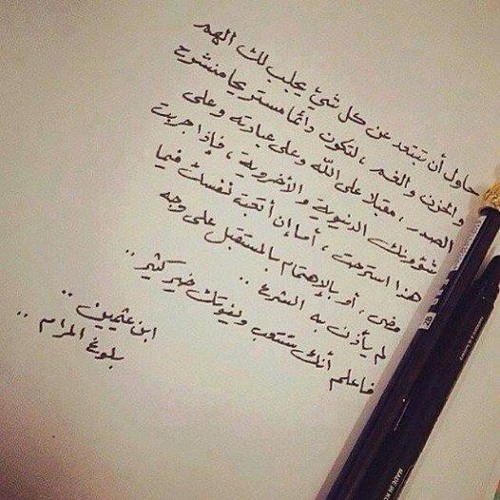 حاول أن تبتعد عن كل شيء يجلب لك الهم
والحزن والغم ، لتكون دائما مستريحا منشرح
الصدر ، مقبلا على الله وعلى عبادته وعلى
شؤونك الدنيوية والأخروية ، فإذا جربت
هذا استرحت ، أما إن أتعبت نفسك فيما
مضى ، أو بالإهتمام بالمستقبل على وجه
لم يأذن به الشرع ..
فاعلم أنك ستتعب ويفوتك خير كثير ..
ابن عثيمين ..
بلوغ المرام ..
2B